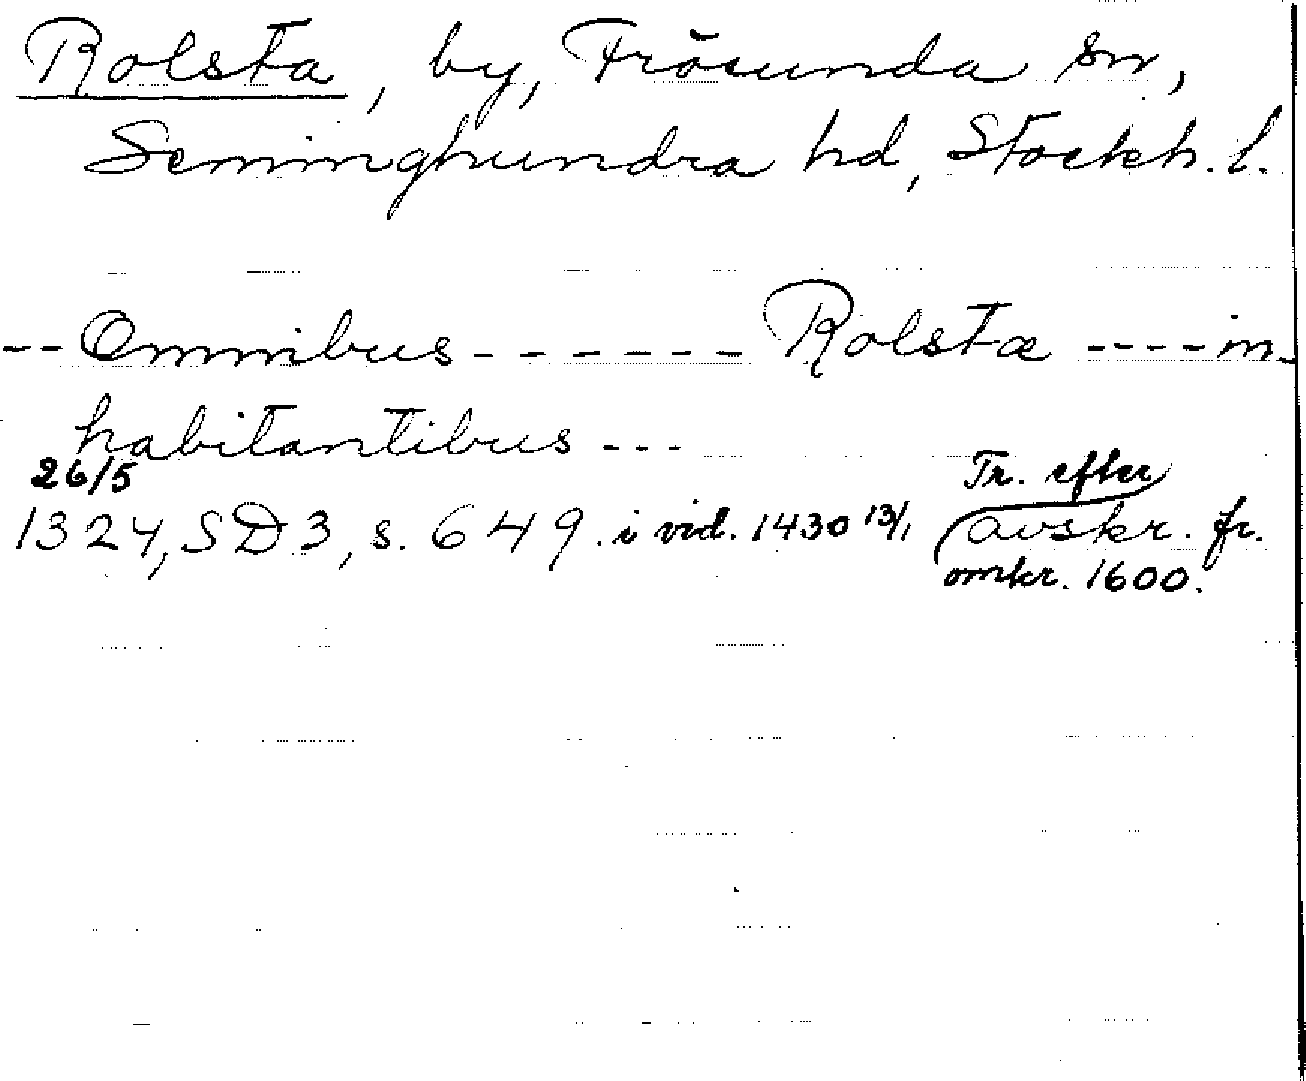 Rolsta, by, Frösunda sn,
Seminghundra hd, Stockh. l.
-- Omnibus ------- Rolstæ ---- in-
habitantibus ---
26/5
1324, SD 3, s. 649. i vid. 1430 13/1 Tr. efter
avskr. fr.
omkr. 1600.